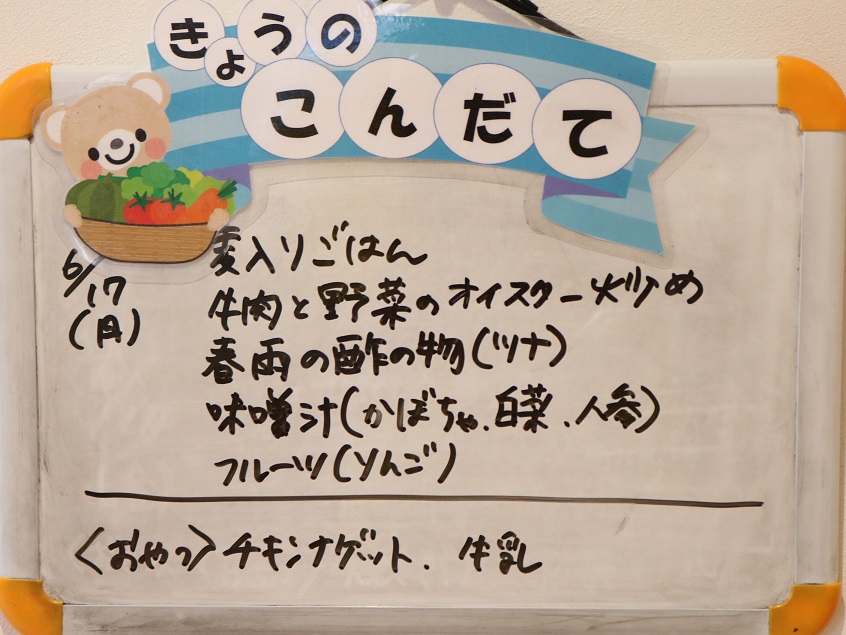 きょうの
こんだて
6/17
(月)
麦入りごはん
牛肉と野菜のオイスター炒め
春雨の酢の物(ツナ)
味噌汁(かぼちゃ、白菜、人参)
フルーツ(りんご)
〈おやつ〉チキンナゲット、牛乳